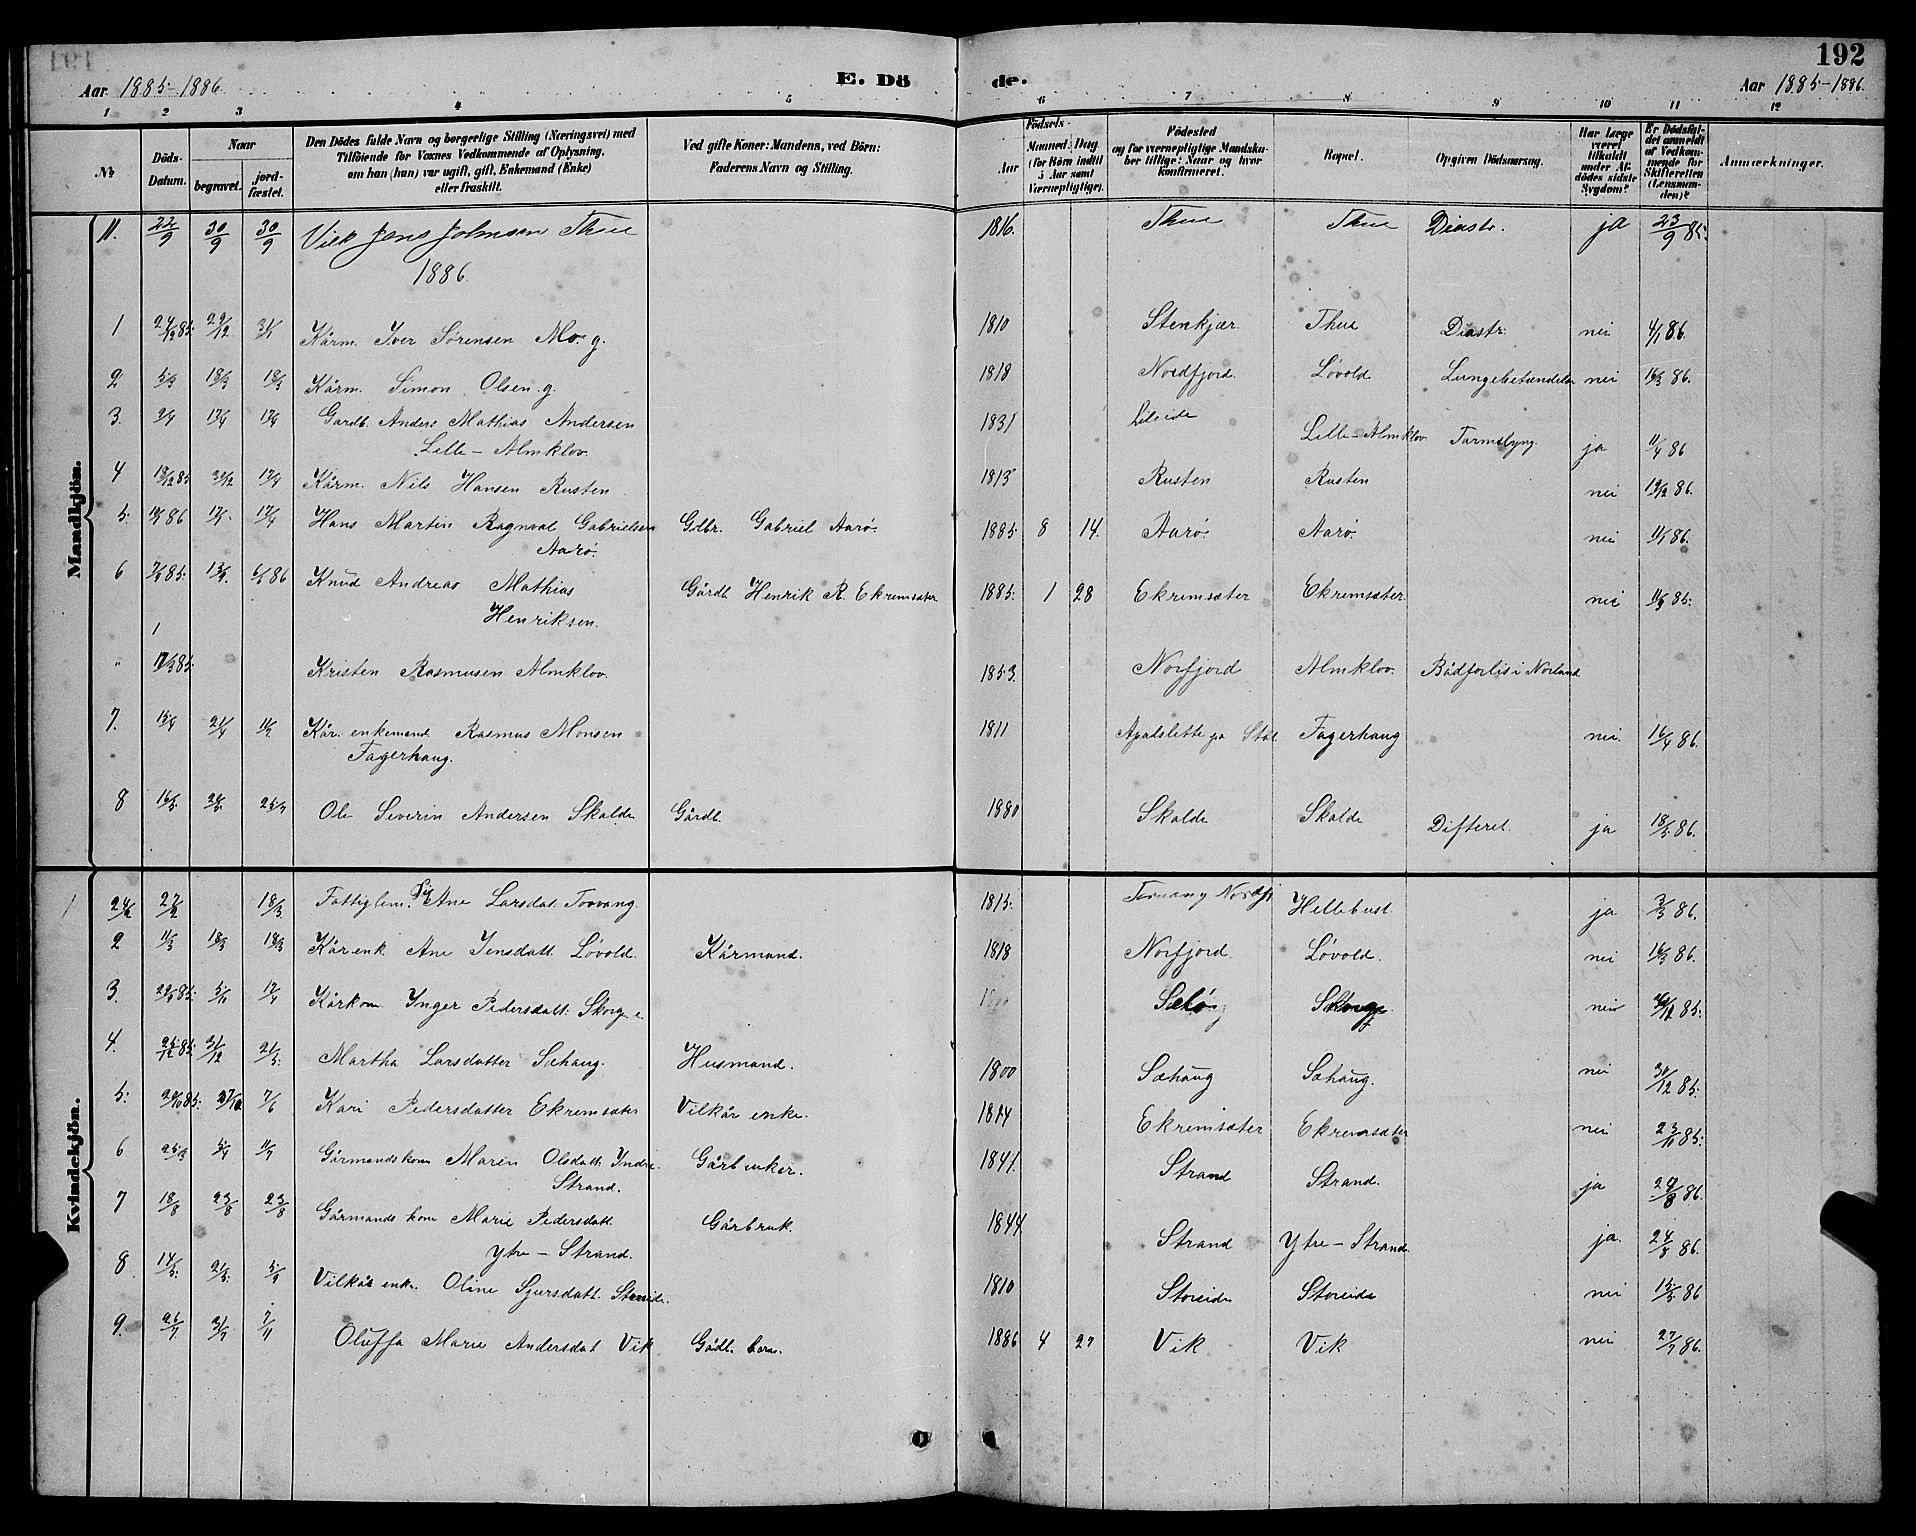 192
Aar 1885-1886.
E. Dö de.
Aar 1885-1886.
1 2 3 4 5 6 7 8 9 10 11 12
№ Döds-Datum. Naar begravet. jord-fæstet. Den Dödes fulde Navn og borgerlige Stilling (Næringsvei) med Tilföiende for Voxnes Vedkommende af Oplysning, om han (hun) var ugift, gift, Enkemand (Enke) eller fraskilt. Ved gifte Koner: Mandens, ved Börn: Faderens Navn og Stilling. Födsels- Aar Maaned. Dag (for Börn indtil 5 Aar samt Værnepligtige). Födested og for værnepligtige Mandskaber tillige: Naar og hvor konfirmeret. Bopæl. Opgiven Dödsaarsag. Har Læge været tilkaldt under Afdödes sidste Sygdom? Er Dödsfaldet anmeldt af Vedkommende for Skifteretten (Lensmanden)? Anmærkninger.
Mandkjön.
11. 22/9 30/9 30/9 Vilk Jens Johnsen Thue 1816. Thue Thue Diastr. ja 23/9 85.
1886.
1 24/12 85. 29/12 31/1 Kårm. Iver Sørensen Mo. g. 1810 Stenkjær. Thue Diastr. nei 4/1 86.
2 5/3 18/3 18/3 Kårm. Simon Olsen. g. 1818 Nordfjord. Løvold Lungebetændelse nei 16/3 86.
3. 9/4 17/4 17/4 Gardb. Anders Mathias Andersen 1831
Lille-Almklov. Lille-Almklov ja 11/4 86
4 18/12 85 31/12 17/4 Kårm. Nils Hansen Rusten 1813 Rusten Rusten nei 19/12 86.
5. 86 17/4 Hans Martin Ragnval Gabrielsen Gdbr. Gabriel Aarø. 1885. 8 14. Aarø. Aarø. nei 86.
Aarø.
6 85. 86 Knud Andreas Mathias Gårdb. Henrik R. Ekremsæter 1885. 1 28 Ekremsæter Ekremsæter. nei 11/9 85.
Henriksen.
" 17/3 85. Kristen Rasmusen Almklov. 1853. Norfjord Almklov. Bådforlis i Norland
7. 15/4 21/4 Kår. enkemand Rasmus Monsen 1811 Fagerhaug nei. 16/4 86.
Fagerhaug.
8 16/5. Ole Severin Andersen Skalde Gårdb. 1880 Skalde Skalde Difteret. ja 18/5. 86.
Kvindekjön.
1 27/2 18/3 Fattiglem. Pig Ane Larsdat. Torvang. 1815. Hellebust ja 3/3 86.
2 11/3 18/3 18/3 Kårenk. Ane Jensdatt. Løvold. Kårmand. 1818 Norfjord. Løvold. nei 16/3 86.
3. 85. 5/11 17/4 Kårkom Inger Pedersdatt. Skorge. Skorge. nei 85.
4. 25/12 85. 31/12 21/5. Martha Larsdatter Sæhaug. Husmand. 1800 Sæhaug Sæhaug. nei 30/12 85.
5. 20/10 85. 31/10. 7/6 Kari Pedersdatter Ekremsæter Vilkår enke. 1814 Ekremsæter Ekremsæter nei 23/11 85.
6 25/3 5/4 Gårmandskom Maren Olsdatt. Yndre. Gårbruker. 1841. Strand Strand. ja 86.
Strand.
7 18/8 23/8 23/8 Gårmands kom Marie Pedersdatt. Gårbruk. 1844 Strand Ytre-Strand. ja. 24/8 86.
Ytre-Strand.
8 14/5. 21/5. 5/9 Vilkår enke. Oline Sjursdatt. Storeide. 1810 Storeide Storeide nei 15/5 86
9. 26/7 31/7 7/11 Oluffa Marie Andersdat Vik Gådb. barn. 1886 4 27 Vik Vik nei 27/7 86.